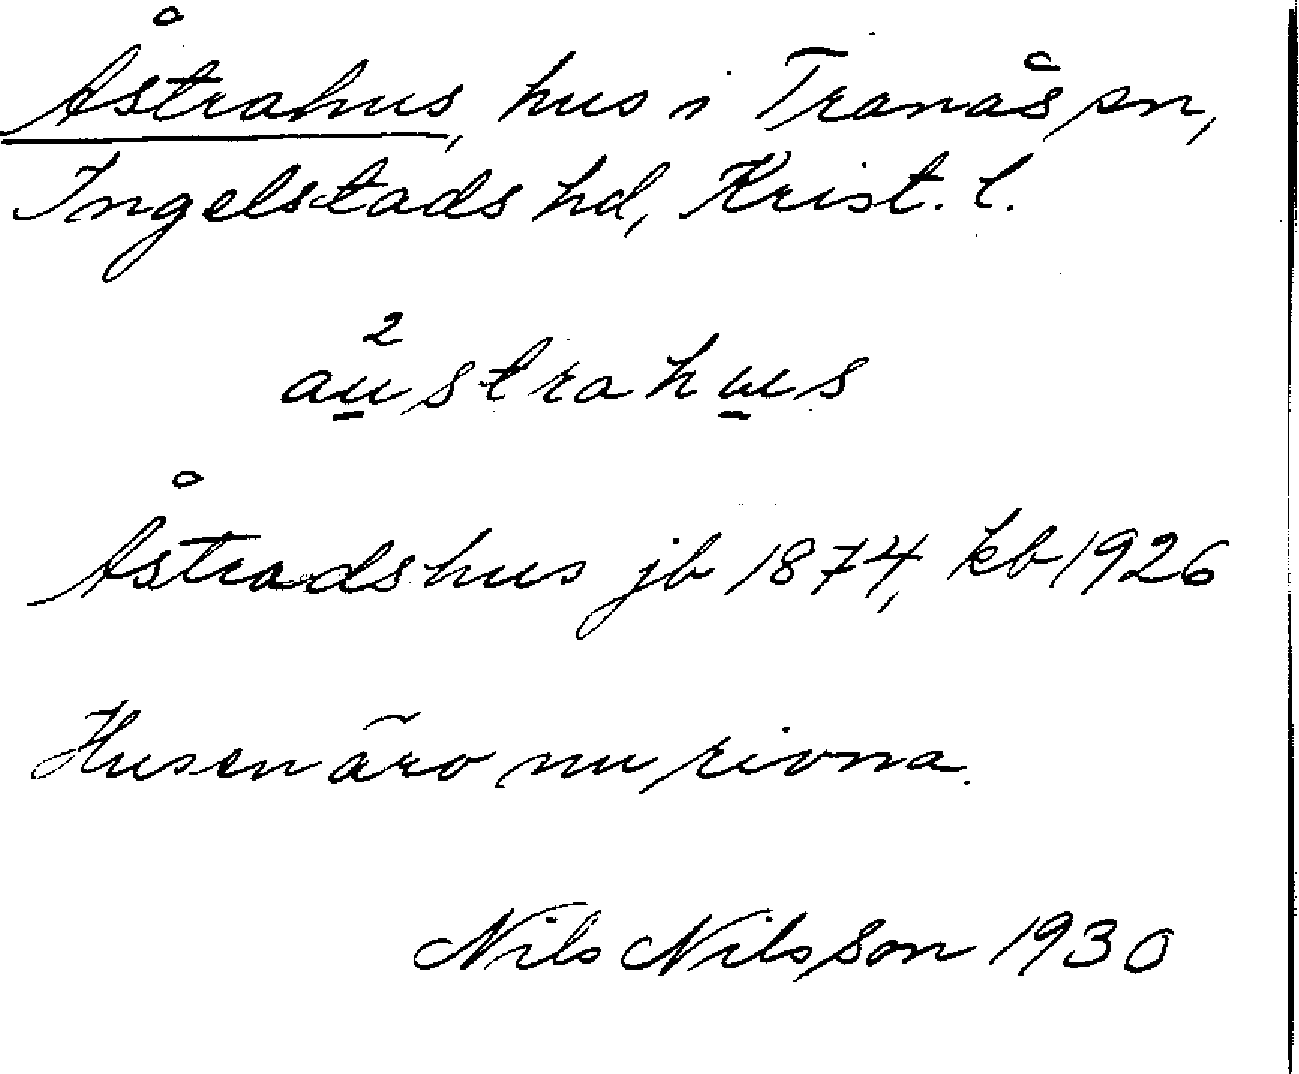 Åstrahus, hus i Tranås sn,
Ingelstads hd, Krist. l.
2
au̱strahu̱s
Åstradshus jb 1874, kb 1926
Husen äro nu rivna.
Nils Nilsson 1930